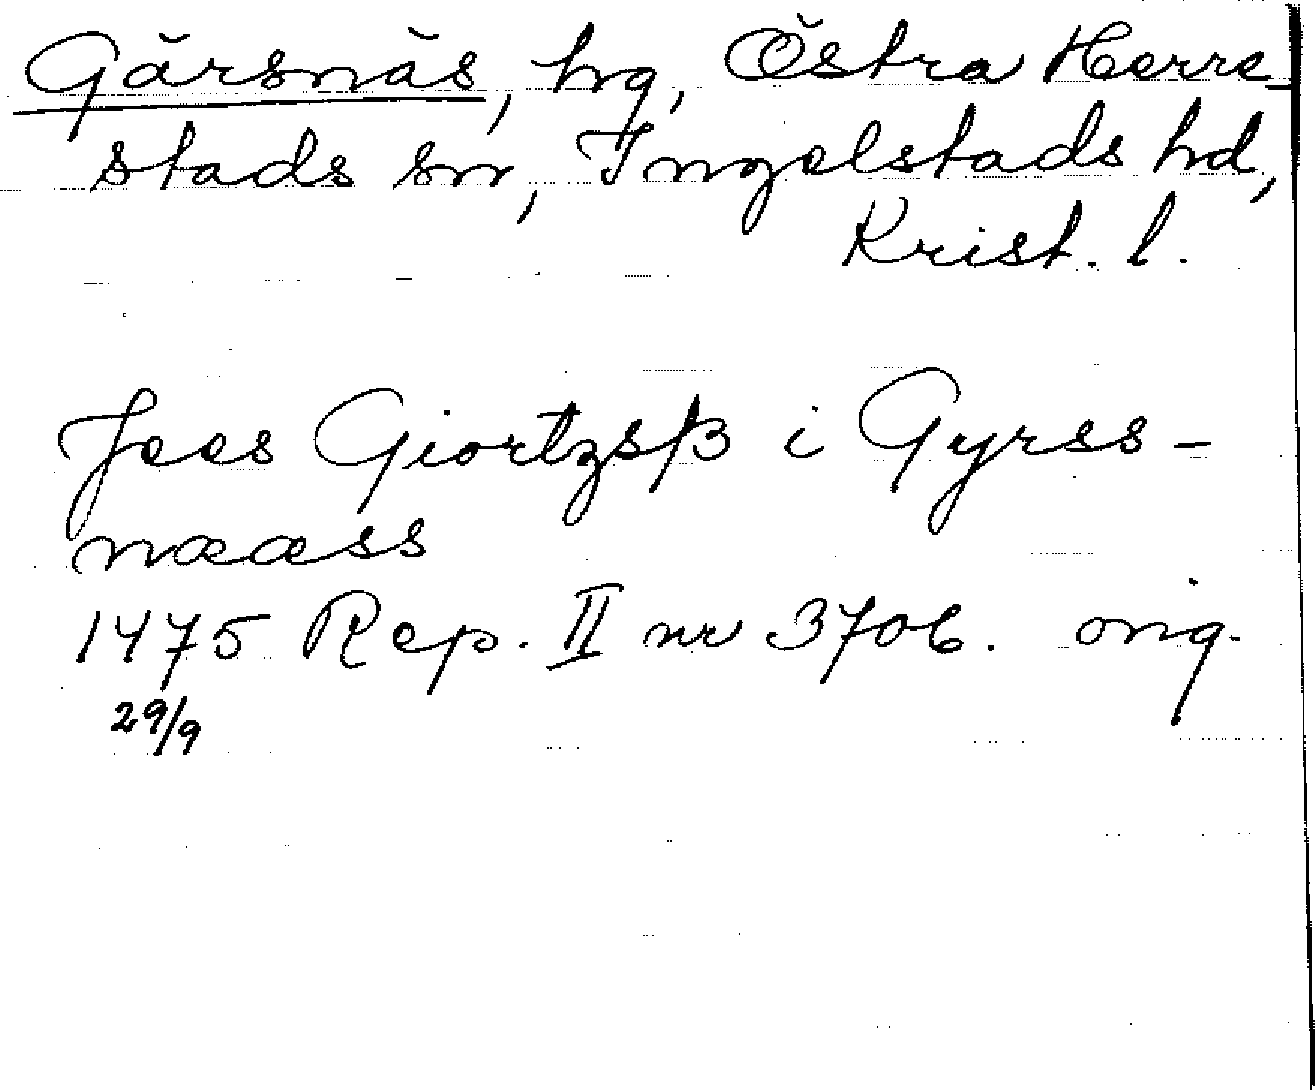 Gärsnäs, hg, Östra Herre-
stads sn, Ingelstads hd,
Krist. l.
Jees Giortzsß i Gyrss-
næœss
1475 Rep. II nr 3706. orig.
29/9